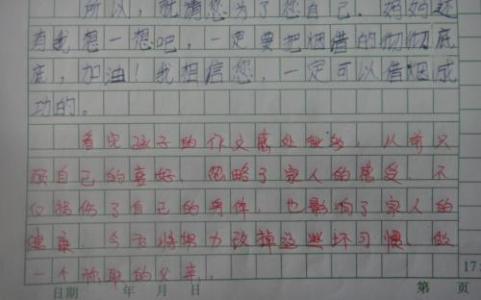 所以，就请您为了您自己、妈妈还
有我想一想吧，一定要把烟借的彻彻底
底，加油！我相信您，一定可以借烟成
功的。
看完孩子的作文感处颇多，从前只
顾自己的喜好，忽略了家人的感受，不
仅损伤了自己的身体，也影响了家人的
健康，今后将努力改掉这些坏习惯，做
一个称职的父亲。
17
日期 年 月 日 第 页